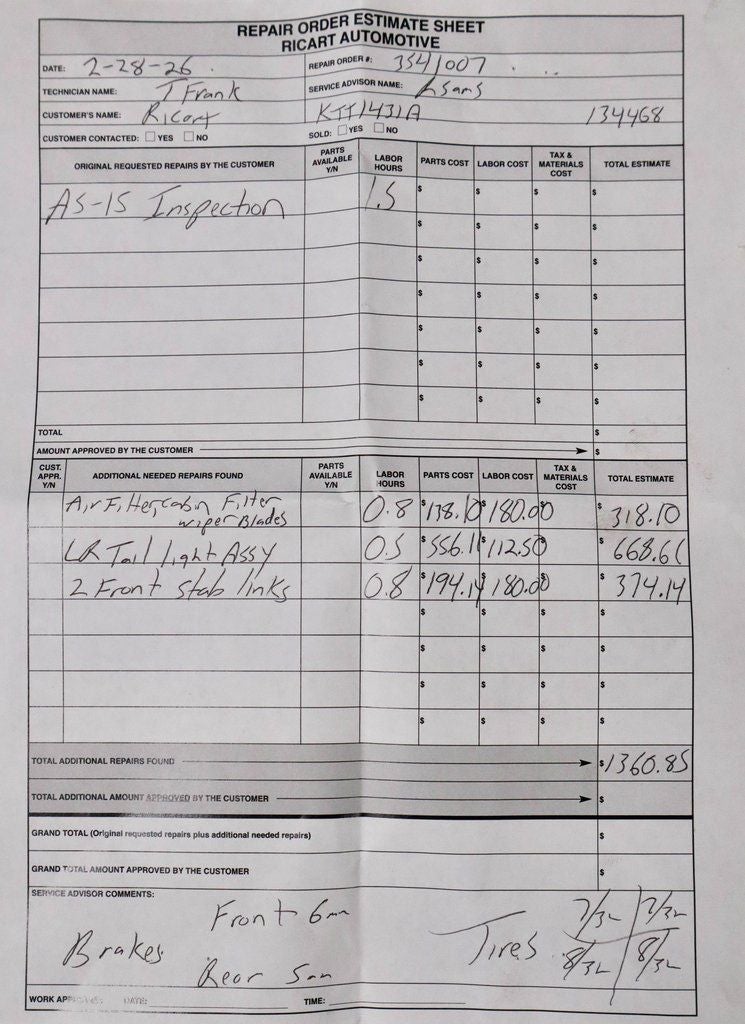 REPAIR ORDER ESTIMATE SHEET
RICART AUTOMOTIVE
DATE: 2-28-26 REPAIR ORDER #: 3541007
TECHNICIAN NAME: T Frank SERVICE ADVISOR NAME: Asams
CUSTOMER'S NAME: Ricart KTT1431A 134468
CUSTOMER CONTACTED: YES NO SOLD: YES NO
ORIGINAL REQUESTED REPAIRS BY THE CUSTOMER PARTS AVAILABLE Y/N LABOR HOURS PARTS COST LABOR COST TAX & MATERIALS COST TOTAL ESTIMATE
AS-IS Inspection 1.5 $ $ $ $
$ $ $ $
$ $ $ $
$ $ $ $
$ $ $ $
$ $ $ $
$ $ $ $
TOTAL $
AMOUNT APPROVED BY THE CUSTOMER $
CUST. APPR. Y/N ADDITIONAL NEEDED REPAIRS FOUND PARTS AVAILABLE Y/N LABOR HOURS PARTS COST LABOR COST TAX & MATERIALS COST TOTAL ESTIMATE
Air Filter, cabin Filter
wiper Blades 0.8 $138.10 $180.00 $ $318.10
LR Tail light Assy 0.5 $556.11 $112.50 $ $668.61
2 Front Stab links 0.8 $194.14 $180.00 $ $374.14
$ $ $ $
$ $ $ $
$ $ $ $
$ $ $ $
TOTAL ADDITIONAL REPAIRS FOUND $1360.85
TOTAL ADDITIONAL AMOUNT APPROVED BY THE CUSTOMER $
GRAND TOTAL (Original requested repairs plus additional needed repairs) $
GRAND TOTAL AMOUNT APPROVED BY THE CUSTOMER $
SERVICE ADVISOR COMMENTS:
Front 6mm 7/32 7/32
Brakes Tires
Rear 5mm 8/32 8/32
WORK APPROVED: DATE: TIME: